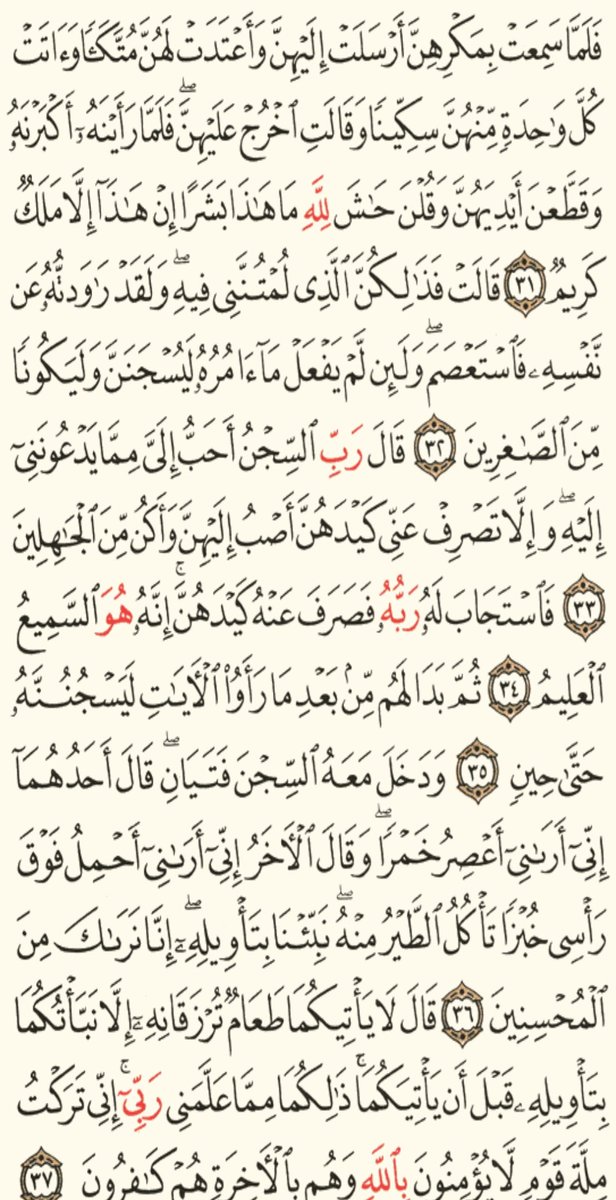 فَلَمَّا سَمِعَتْ بِمَكْرِهِنَّ أَرْسَلَتْ إِلَيْهِنَّ وَأَعْتَدَتْ لَهُنَّ مُتَّكَـًٔا وَءَاتَتْ
كُلَّ وَٰحِدَةٍ مِّنْهُنَّ سِكِّينًا وَقَالَتِ ٱخْرُجْ عَلَيْهِنَّۖ فَلَمَّا رَأَيْنَهُۥٓ أَكْبَرْنَهُۥ
وَقَطَّعْنَ أَيْدِيَهُنَّ وَقُلْنَ حَٰشَ لِلَّهِ مَا هَٰذَا بَشَرًا إِنْ هَٰذَآ إِلَّا مَلَكٌ
كَرِيمٌ ٣١ قَالَتْ فَذَٰلِكُنَّ ٱلَّذِى لُمْتُنَّنِى فِيهِۖ وَلَقَدْ رَٰوَدتُّهُۥ عَن
نَّفْسِهِۦ فَٱسْتَعْصَمَۖ وَلَئِن لَّمْ يَفْعَلْ مَآ ءَامُرُهُۥ لَيُسْجَنَنَّ وَلَيَكُونًا
مِّنَ ٱلصَّٰغِرِينَ ٣٢ قَالَ رَبِّ ٱلسِّجْنُ أَحَبُّ إِلَىَّ مِمَّا يَدْعُونَنِىٓ
إِلَيْهِۖ وَإِلَّا تَصْرِفْ عَنِّى كَيْدَهُنَّ أَصْبُ إِلَيْهِنَّ وَأَكُن مِّنَ ٱلْجَٰهِلِينَ
٣٣ فَٱسْتَجَابَ لَهُۥ رَبُّهُۥ فَصَرَفَ عَنْهُ كَيْدَهُنَّۚ إِنَّهُۥ هُوَ ٱلسَّمِيعُ
ٱلْعَلِيمُ ٣٤ ثُمَّ بَدَا لَهُم مِّنۢ بَعْدِ مَا رَأَوُا۟ ٱلْءَايَٰتِ لَيَسْجُنُنَّهُۥ
حَتَّىٰ حِينٍ ٣٥ وَدَخَلَ مَعَهُ ٱلسِّجْنَ فَتَيَانِۖ قَالَ أَحَدُهُمَآ
إِنِّىٓ أَرَىٰنِىٓ أَعْصِرُ خَمْرًاۖ وَقَالَ ٱلْءَاخَرُ إِنِّىٓ أَرَىٰنِىٓ أَحْمِلُ فَوْقَ
رَأْسِى خُبْزًا تَأْكُلُ ٱلطَّيْرُ مِنْهُۖ نَبِّئْنَا بِتَأْوِيلِهِۦٓۖ إِنَّا نَرَىٰكَ مِنَ
ٱلْمُحْسِنِينَ ٣٦ قَالَ لَا يَأْتِيكُمَا طَعَامٌ تُرْزَقَانِهِۦٓ إِلَّا نَبَّأْتُكُمَا
بِتَأْوِيلِهِۦ قَبْلَ أَن يَأْتِيَكُمَاۚ ذَٰلِكُمَا مِمَّا عَلَّمَنِى رَبِّىٓۚ إِنِّى تَرَكْتُ
مِلَّةَ قَوْمٍ لَّا يُؤْمِنُونَ بِٱللَّهِ وَهُم بِٱلْءَاخِرَةِ هُمْ كَٰفِرُونَ ٣٧